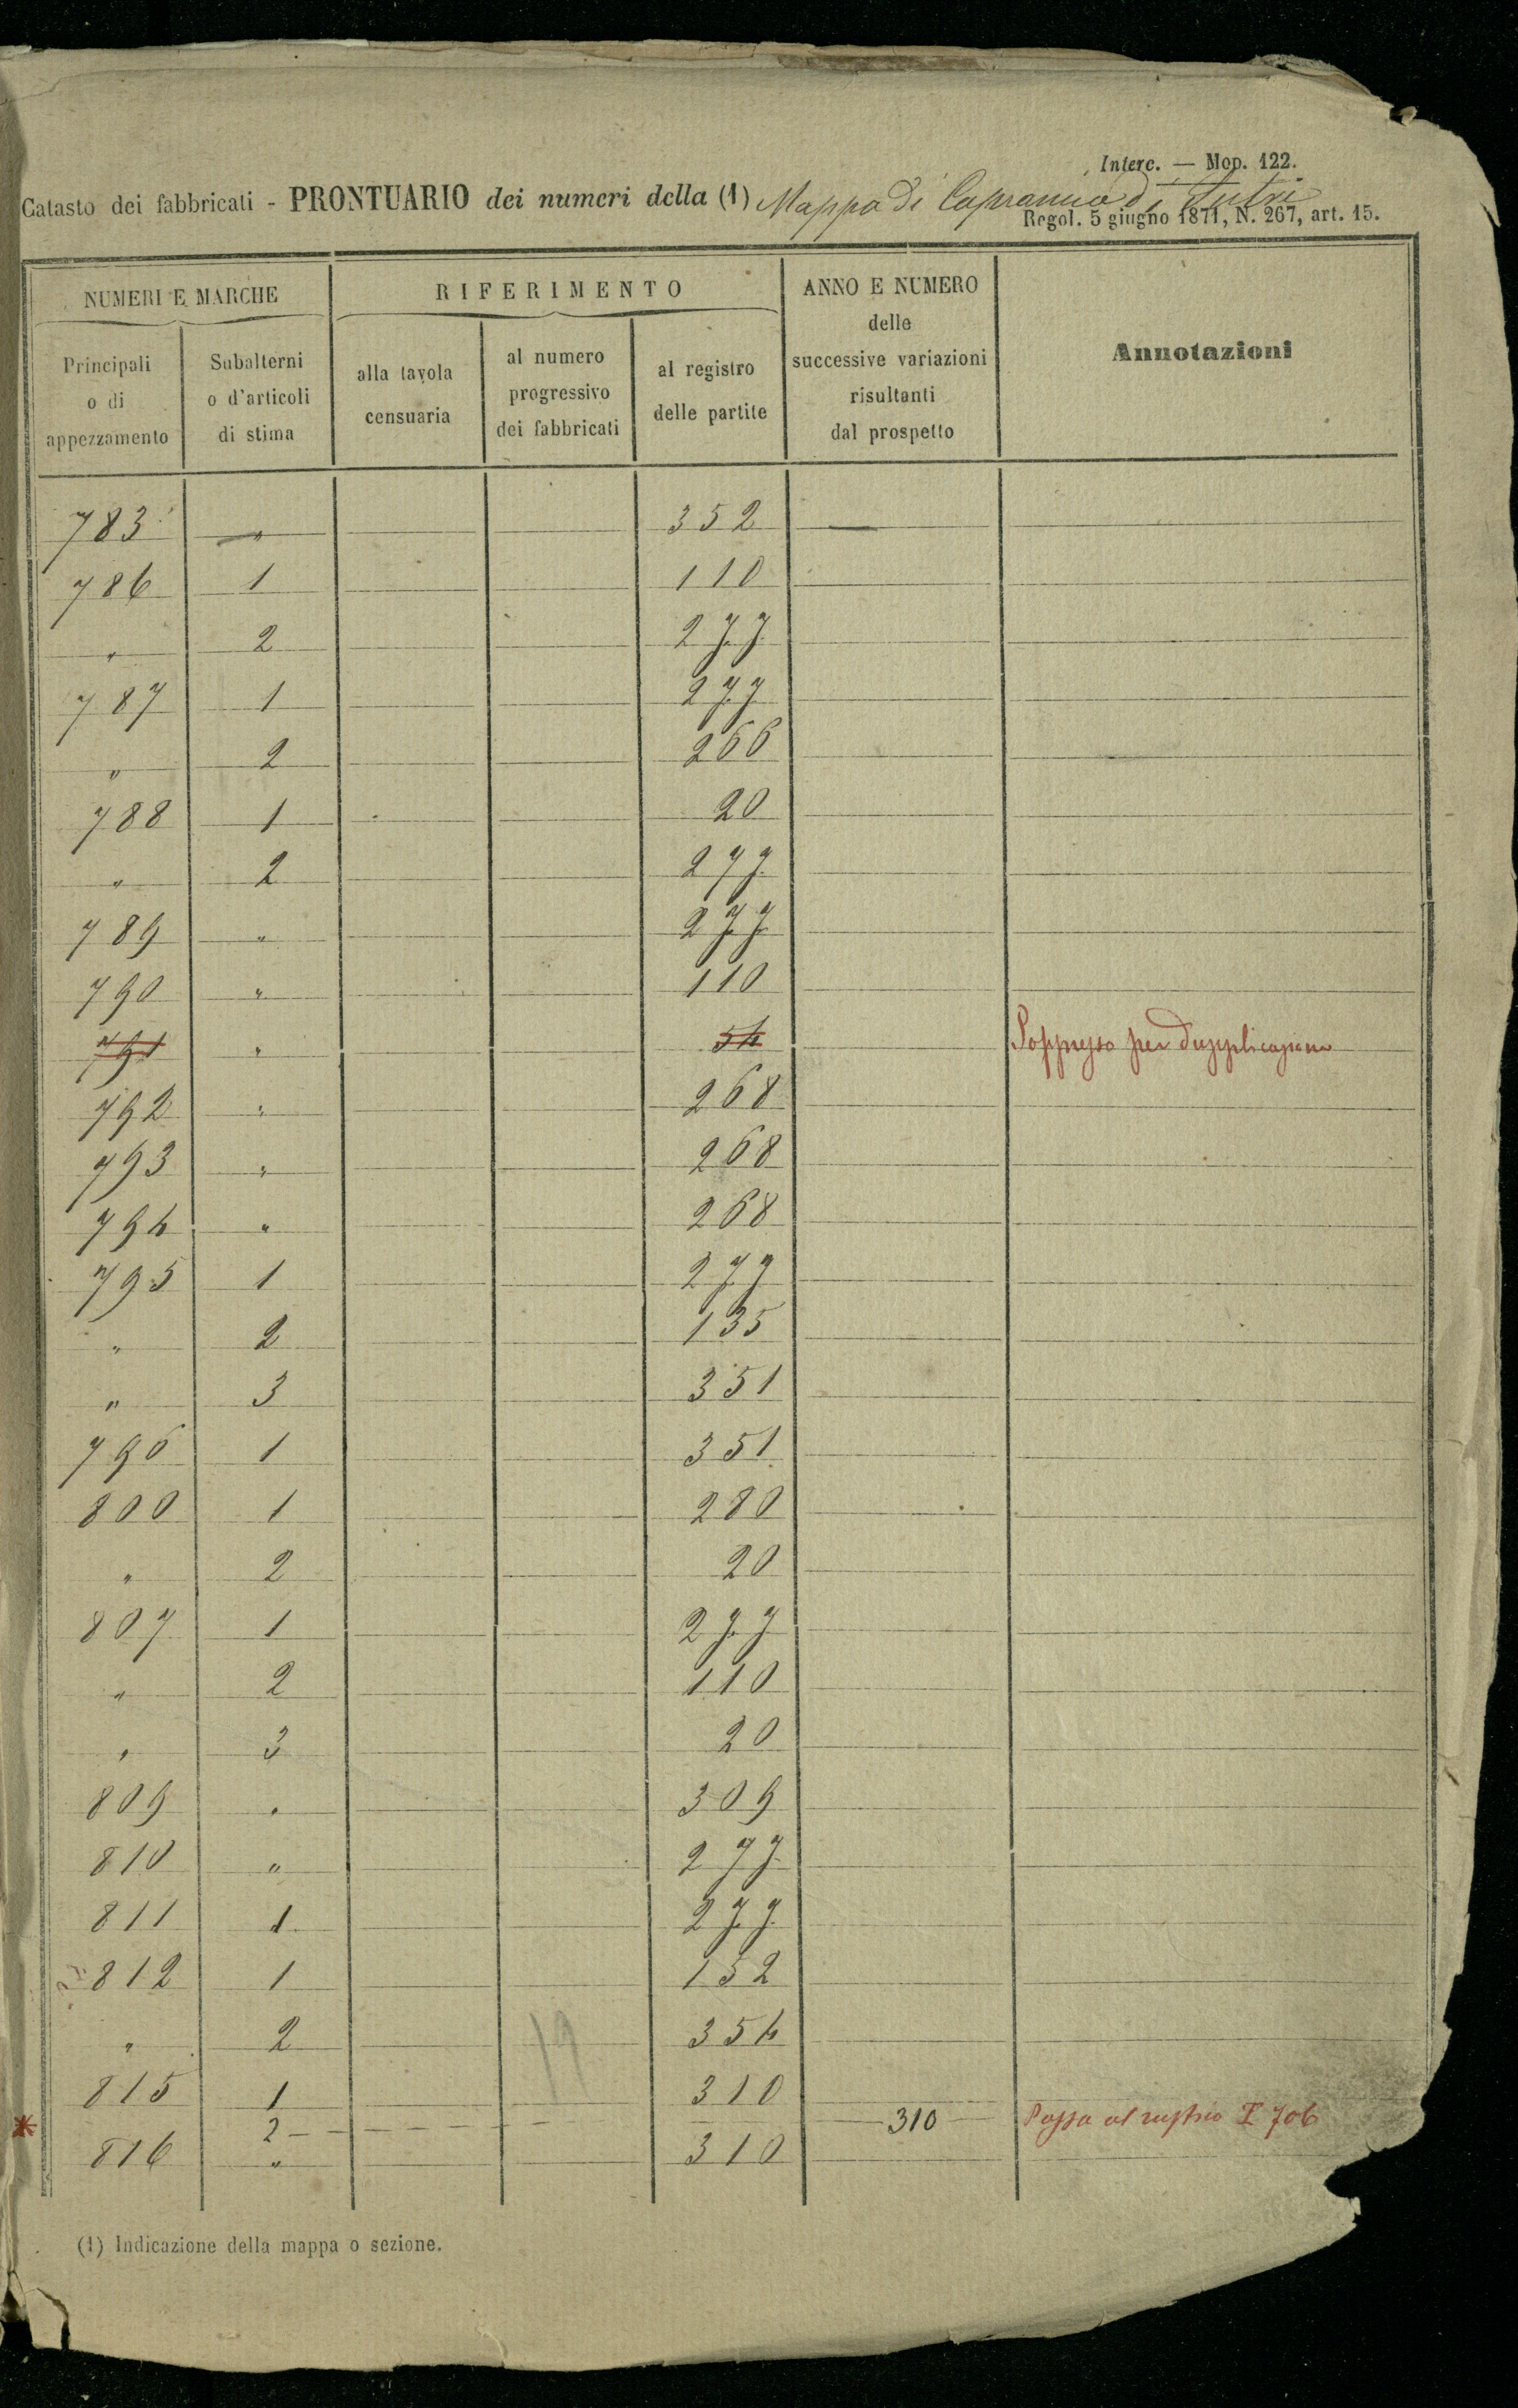 Interc. — Mop. 122.
Catasto dei fabbricati - PRONTUARIO dei numeri della (1) Mappa di Capranica di Sutri
Regol. 5 giugno 1871, N. 267, art. 15.
NUMERI E MARCHE
RIFERIMENTO
ANNO E NUMERO
delle
successive variazioni
risultanti
dal prospetto
Annotazioni
Principali
o di
appezzamento
Subalterni
o d'articoli
di stima
alla tavola
censuaria
al numero
progressivo
dei fabbricati
al registro
delle partite
783 " 352 —
786 1 110
" 2 277
787 1 277
" 2 266
788 1 20
" 2 277
789 " 277
790 " 110
791 " 54 Soppresso per dupplicazione
792 " 268
793 " 268
794 " 268
795 1 277
" 2 135
" 3 351
796 1 351
800 1 280
" 2 20
807 1 277
" 2 110
" 3 20
809 " 309
810 " 277
811 1 277
812 1 152
" 2 19 354
815 1 310
* 2 - - - - - 310 Passa al rustico P 706
816 " 310
(1) Indicazione della mappa o sezione.